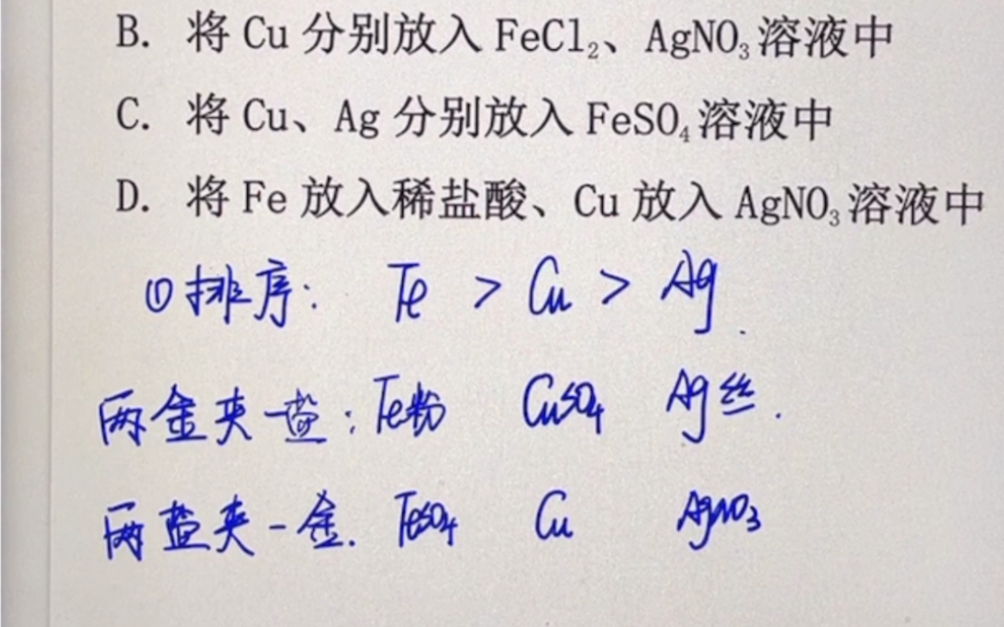 B. 将 Cu 分别放入 FeCl₂、AgNO₃ 溶液中
C. 将 Cu、Ag 分别放入 FeSO₄ 溶液中
D. 将 Fe 放入稀盐酸、Cu 放入 AgNO₃ 溶液中
①排序: Fe > Cu > Ag.
两金夹一盐:Fe粉 CuSO4 Ag丝.
两盐夹一金. FeSO4 Cu AgNO3